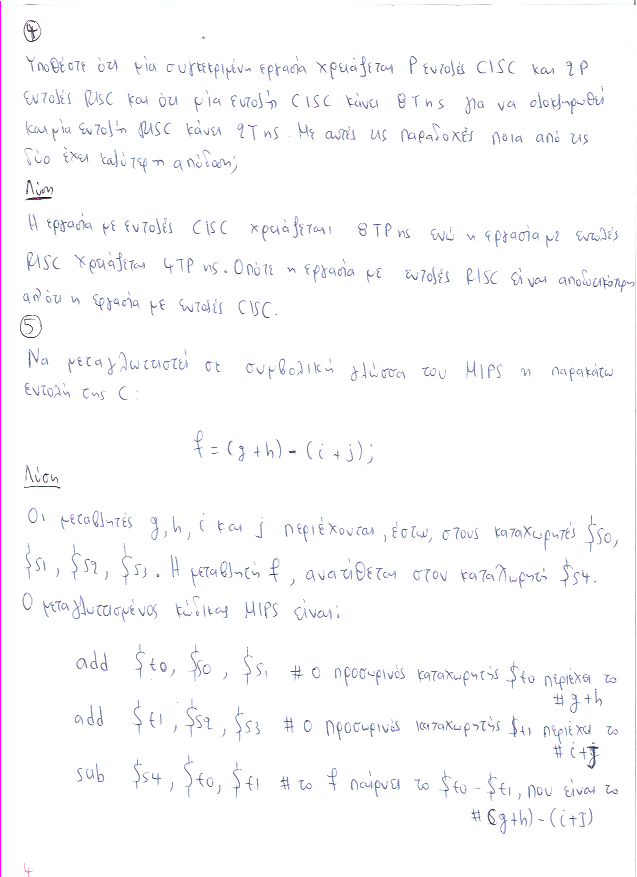 4
Υποθέστε ότι μία συγκεκριμένη εργασία χρειάζεται P εντολές CISC και 2P
εντολές RISC και ότι μία εντολή CISC κάνει 8T ης για να ολοκληρωθεί
και μία εντολή RISC κάνει 2T ης. Με αυτές τις παραδοχές ποια από τις
δύο έχει καλύτερη απόδοση;
Λύση
Η εργασία με εντολές CISC χρειάζεται 8TP ης ενώ η εργασία με εντολές
RISC χρειάζεται 4TP ης. Οπότε η εργασία με εντολές RISC είναι αποδοτικότερη
απ'ότι η εργασία με εντολές CISC.
5
Να μεταγλωττιστεί σε συμβολική γλώσσα του MIPS η παρακάτω
εντολή της C:
f = (g+h) - (i+j);
Λύση
Οι μεταβλητές g, h, i και j περιέχονται, έστω, στους καταχωρητές $s0,
$s1, $s2, $s3. Η μεταβλητή f, ανατίθεται στον καταχωρητή $s4.
Ο μεταγλωττισμένος κώδικας MIPS είναι:
add $t0, $s0, $s1 # ο προσωρινός καταχωρητής $t0 περιέχει το
# g+h
add $t1, $s2, $s3 # ο προσωρινός καταχωρητής $t1 περιέχει το
# i+j
sub $s4, $t0, $t1 # το f παίρνει το $t0-$t1, που είναι το
# (g+h)-(i+J)
4